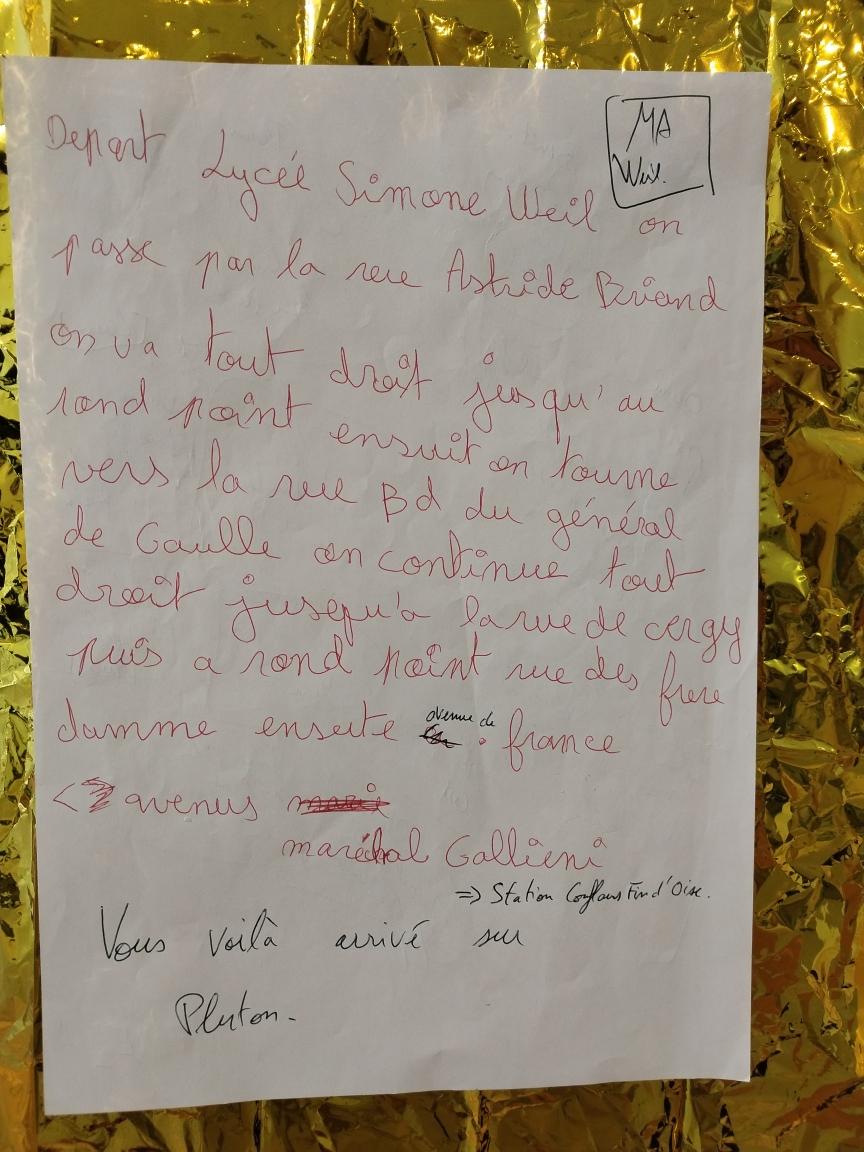 MA
Weil.
Depart Lycéé Simone Weil on
passe par la rue Astride Briand
on va tout droit jusqu'au
rond point ensuit on tourne
vers la rue Bd du général
de Gaulle on continue tout
droit jusequ'a la rue de cergy
puis a rond point rue des frere
damme ensuite avenue de france
avenus
maréchal Gallieni
=> Station Conflans Fin d'Oise.
Vous voilà arrivé sur
Pluton.